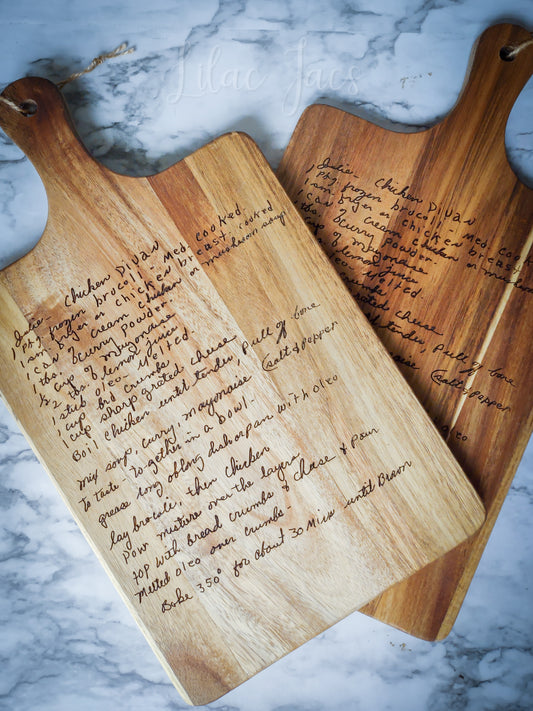 Lilac Jacs
Julie - Chicken Divan
1 pkg frozen brocoli - Med. cooked
1 am. fryer or chicken breast cooked
1 can of cream chicken or mushroom soup
1 tbs. of curry powder
½ cup of mayonaise
2 tbs. of lemon juice
1 stick oleo melted
1 cup brd crumbs
1 cup sharp grated cheese
Boil chicken until tender, pull off bone
mix soup, curry, mayonaise (salt & pepper
to taste - together in a bowl.
grease long oblong dish or pan with oleo
lay brocole, then chicken
Pour mixture over the layers
top with bread crumbs & chese & pour
melted oleo over crumbs -
Bake 350° for about 30 Mins until Brown
Julie - Chicken Divan
1 pkg frozen brocoli - Med. cooked
1 am. fryer or chicken breast
1 can of cream chicken or mushroom
tbs. of curry powder
of mayonaise
lemon juice
melted.
crumbs
grated cheese
until tender, pull of bone
mayonaise (salt & pepper
oleo